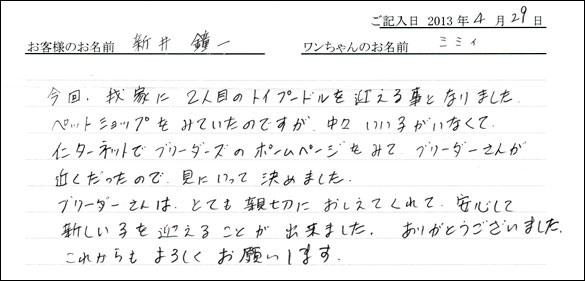 ご記入日 2013 年 4 月 29 日
お客様のお名前 新井 鐘一 ワンちゃんのお名前 ミミィ
今回、我家に 2人目のトイプードルを迎える事となりました。
ペットショップをみていたのですが、中々 いい子がいなくて、
インターネットで ブリーダーズの ホームページをみて ブリーダーさんが
近くだったので、見にいって 決めました。
ブリーダーさんは、とても 親切に おしえてくれて、安心して
新しい子を迎えることが 出来ました。 ありがとうございました。
これからも よろしく お願いします。